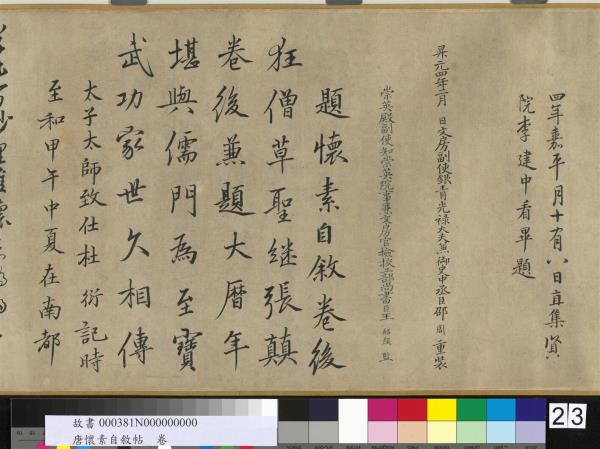 四年嘉平月十有八日直集賢
院李建中看畢題
昇元四年二月 日文房副使銀青光祿大夫兼御史中丞臣邵 周 重裝
崇英殿副使知崇英院事兼文房官檢校工部尚書臣王 紹顏 監
題懷素自敘卷後
狂僧草聖繼張顛
卷後兼題大曆年
堪與儒門為至寶
武功家世久相傳
太子太師致仕杜衍記時
至和甲午中夏在南都
故書 000381N000000000
唐懷素自敘帖 卷
23